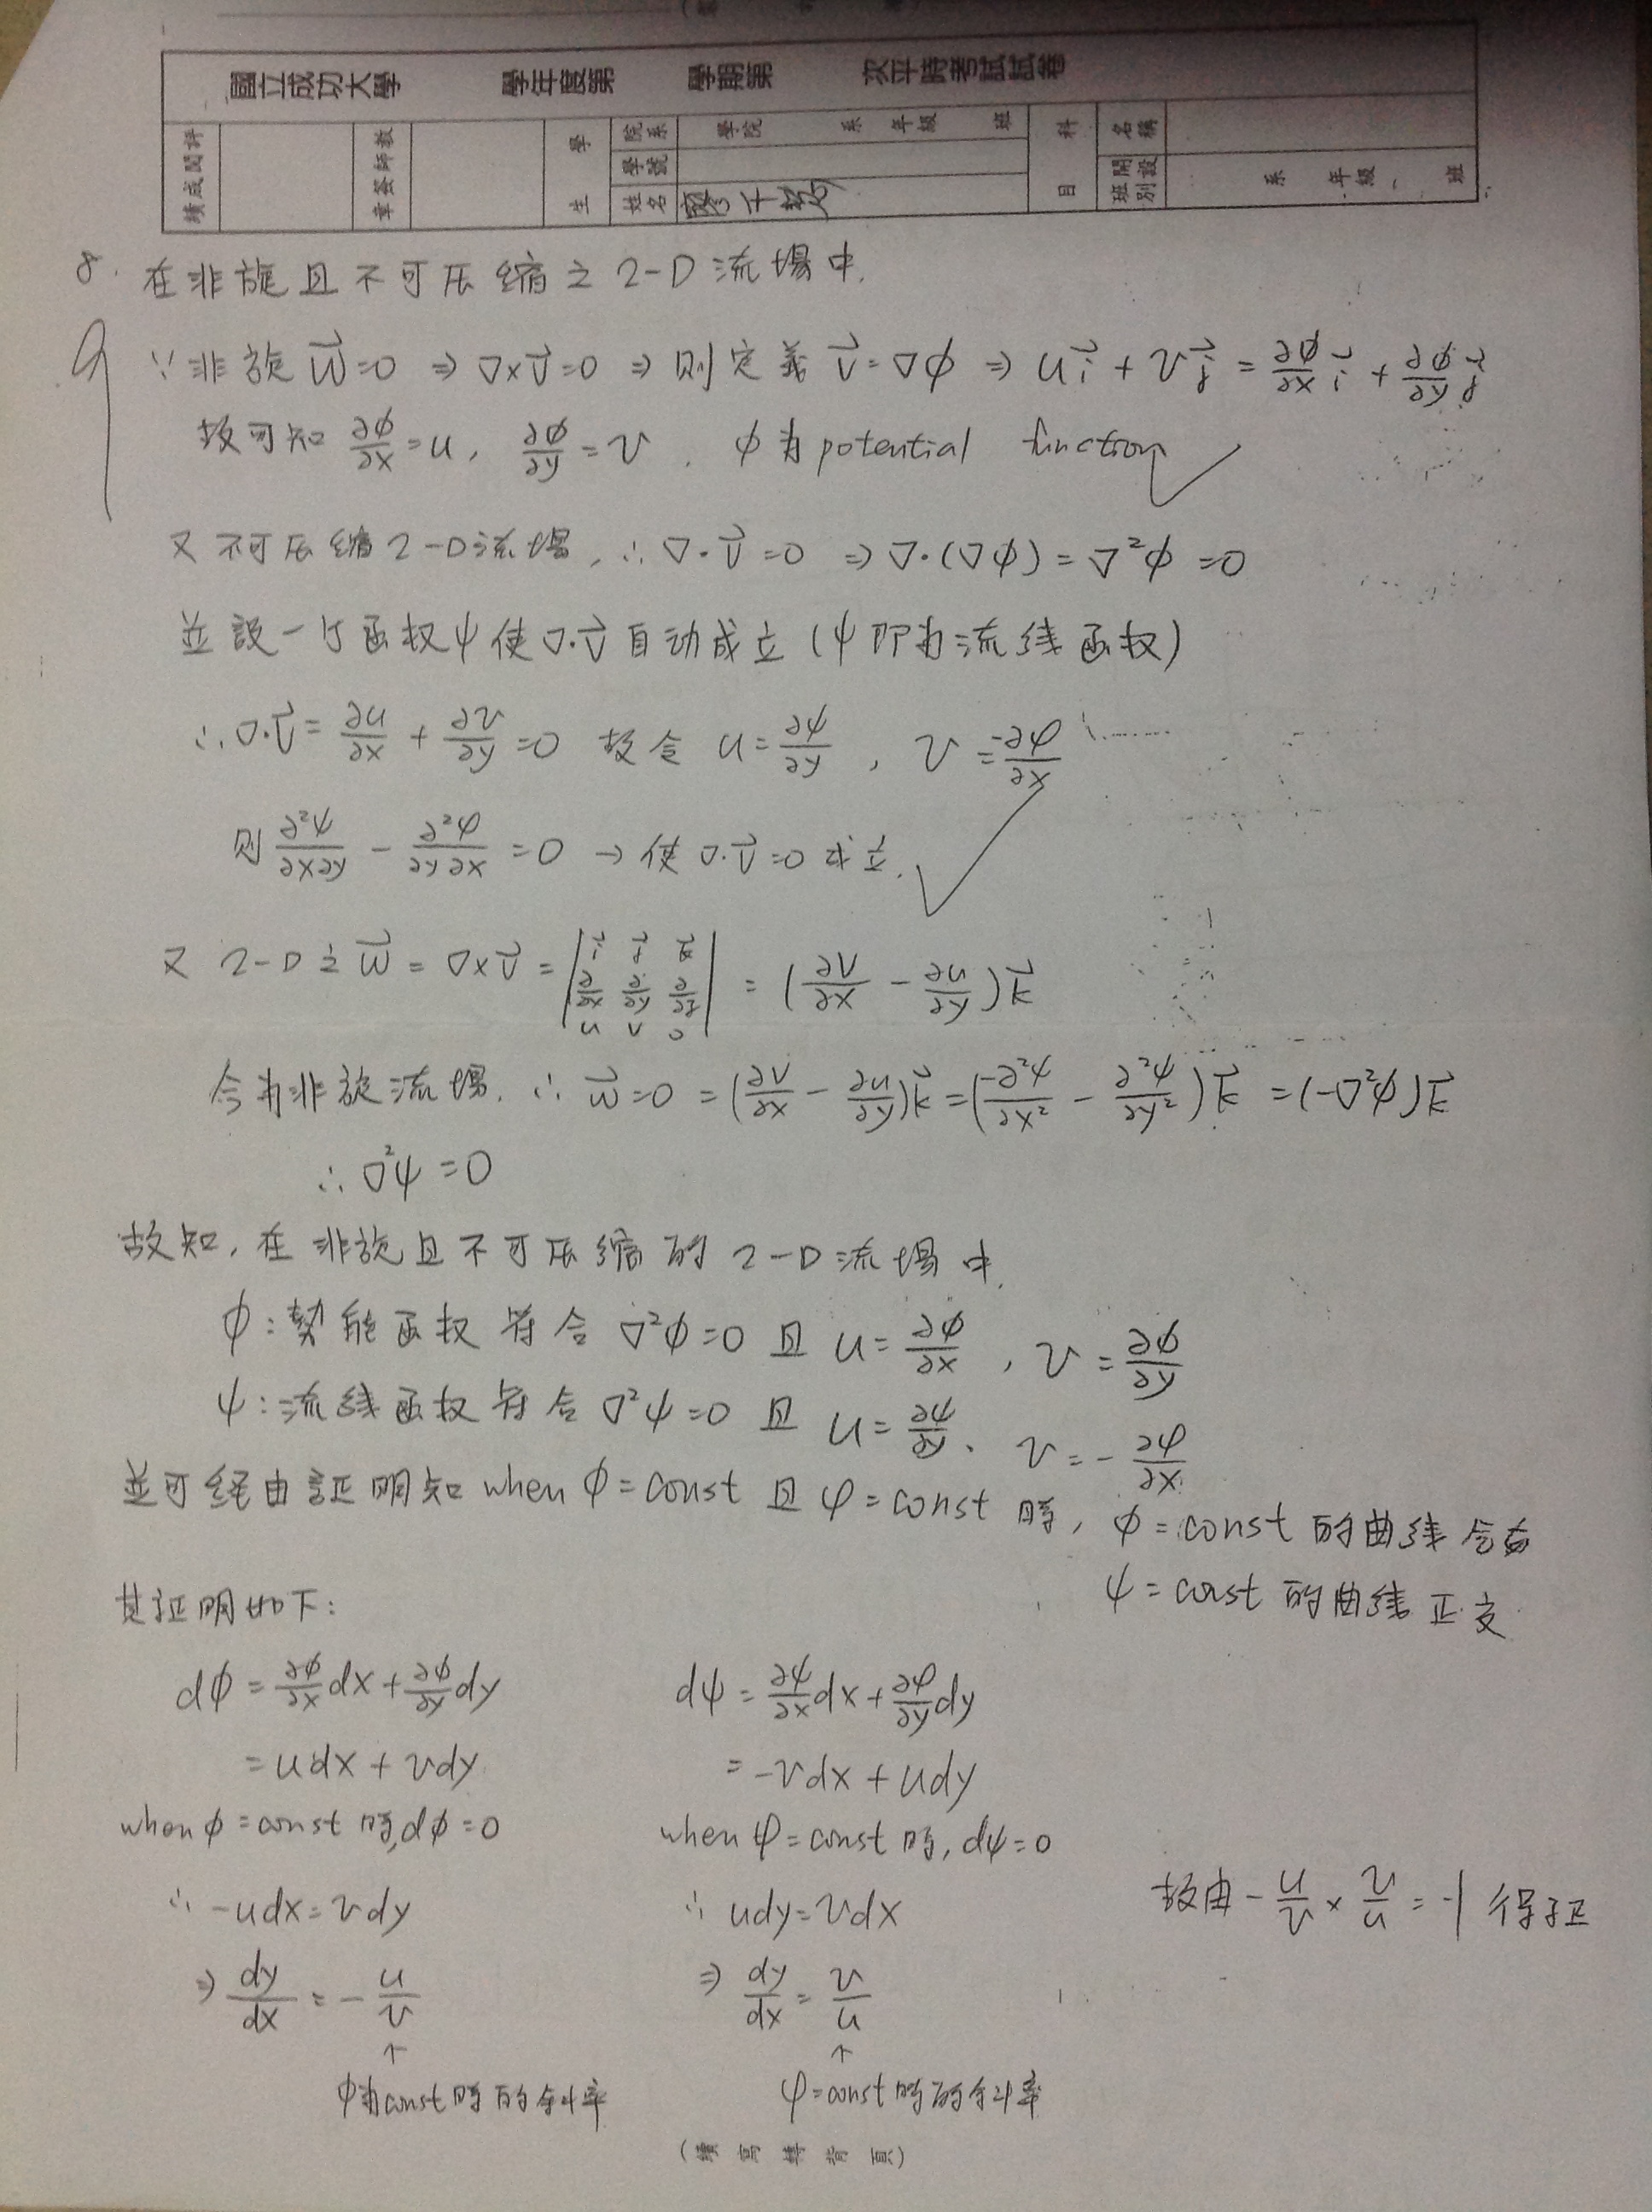 國立成功大學 學年度第 學期第 次平時考試試卷
評閱成績 教師簽章 學生 院系 學院 系 年級 班 科目 名稱
學號 開設班別 系 年級 班
姓名
8. 在非旋且不可压縮之 2-D 流場中.
9
∵非旋 w⃗=0 ⇒ ∇×V⃗=0 ⇒ 則定義 V⃗=∇φ ⇒ ui⃗ + vj⃗ = ∂φ/∂x i⃗ + ∂φ/∂y j⃗
故可知 ∂φ/∂x = u, ∂φ/∂y = v . φ为 potential function
又不可压縮 2-D 流場, ∴ ∇·V⃗ =0 ⇒ ∇·(∇φ) = ∇²φ =0
並設一个函权ψ使∇·V⃗自动成立 (ψ即为流线函权)
∴ ∇·V⃗ = ∂u/∂x + ∂v/∂y =0 故令 u = ∂ψ/∂y , v = -∂ψ/∂x
则 ∂²ψ/∂x∂y - ∂²ψ/∂y∂x = 0 → 使 ∇·V⃗=0 成立.
又 2-D 之 w⃗ = ∇×V⃗ = | i⃗ j⃗ k⃗ ; ∂/∂x ∂/∂y ∂/∂z ; u v 0 | = (∂v/∂x - ∂u/∂y)k⃗
今为非旋流場. ∴ w⃗=0 = (∂v/∂x - ∂u/∂y)k⃗ = (-∂²ψ/∂x² - ∂²ψ/∂y²)k⃗ = (-∇²ψ)k⃗
∴ ∇²ψ = 0
故知, 在非旋且不可压縮的 2-D 流場中,
φ:勢能函权符合 ∇²φ=0 且 u = ∂φ/∂x , v = ∂φ/∂y
ψ:流线函权符合 ∇²ψ=0 且 u = ∂ψ/∂y, v = - ∂ψ/∂x
並可經由証明知 when φ = const 且 ψ = const 時, φ = const 的曲线会与
ψ = const 的曲线正交
其証明如下:
dφ = ∂φ/∂x dx + ∂φ/∂y dy
= udx + vdy
when φ = const 時, dφ = 0
∴ -udx = vdy
⇒ dy/dx = - u/v
↑
φ为const時的斜率
dψ = ∂ψ/∂x dx + ∂ψ/∂y dy
= -vdx + udy
when ψ = const 時, dψ = 0
∴ udy = vdx
⇒ dy/dx = v/u
↑
ψ=const時的斜率
故由 - u/v × v/u = -1 得証
(續寫轉背頁)